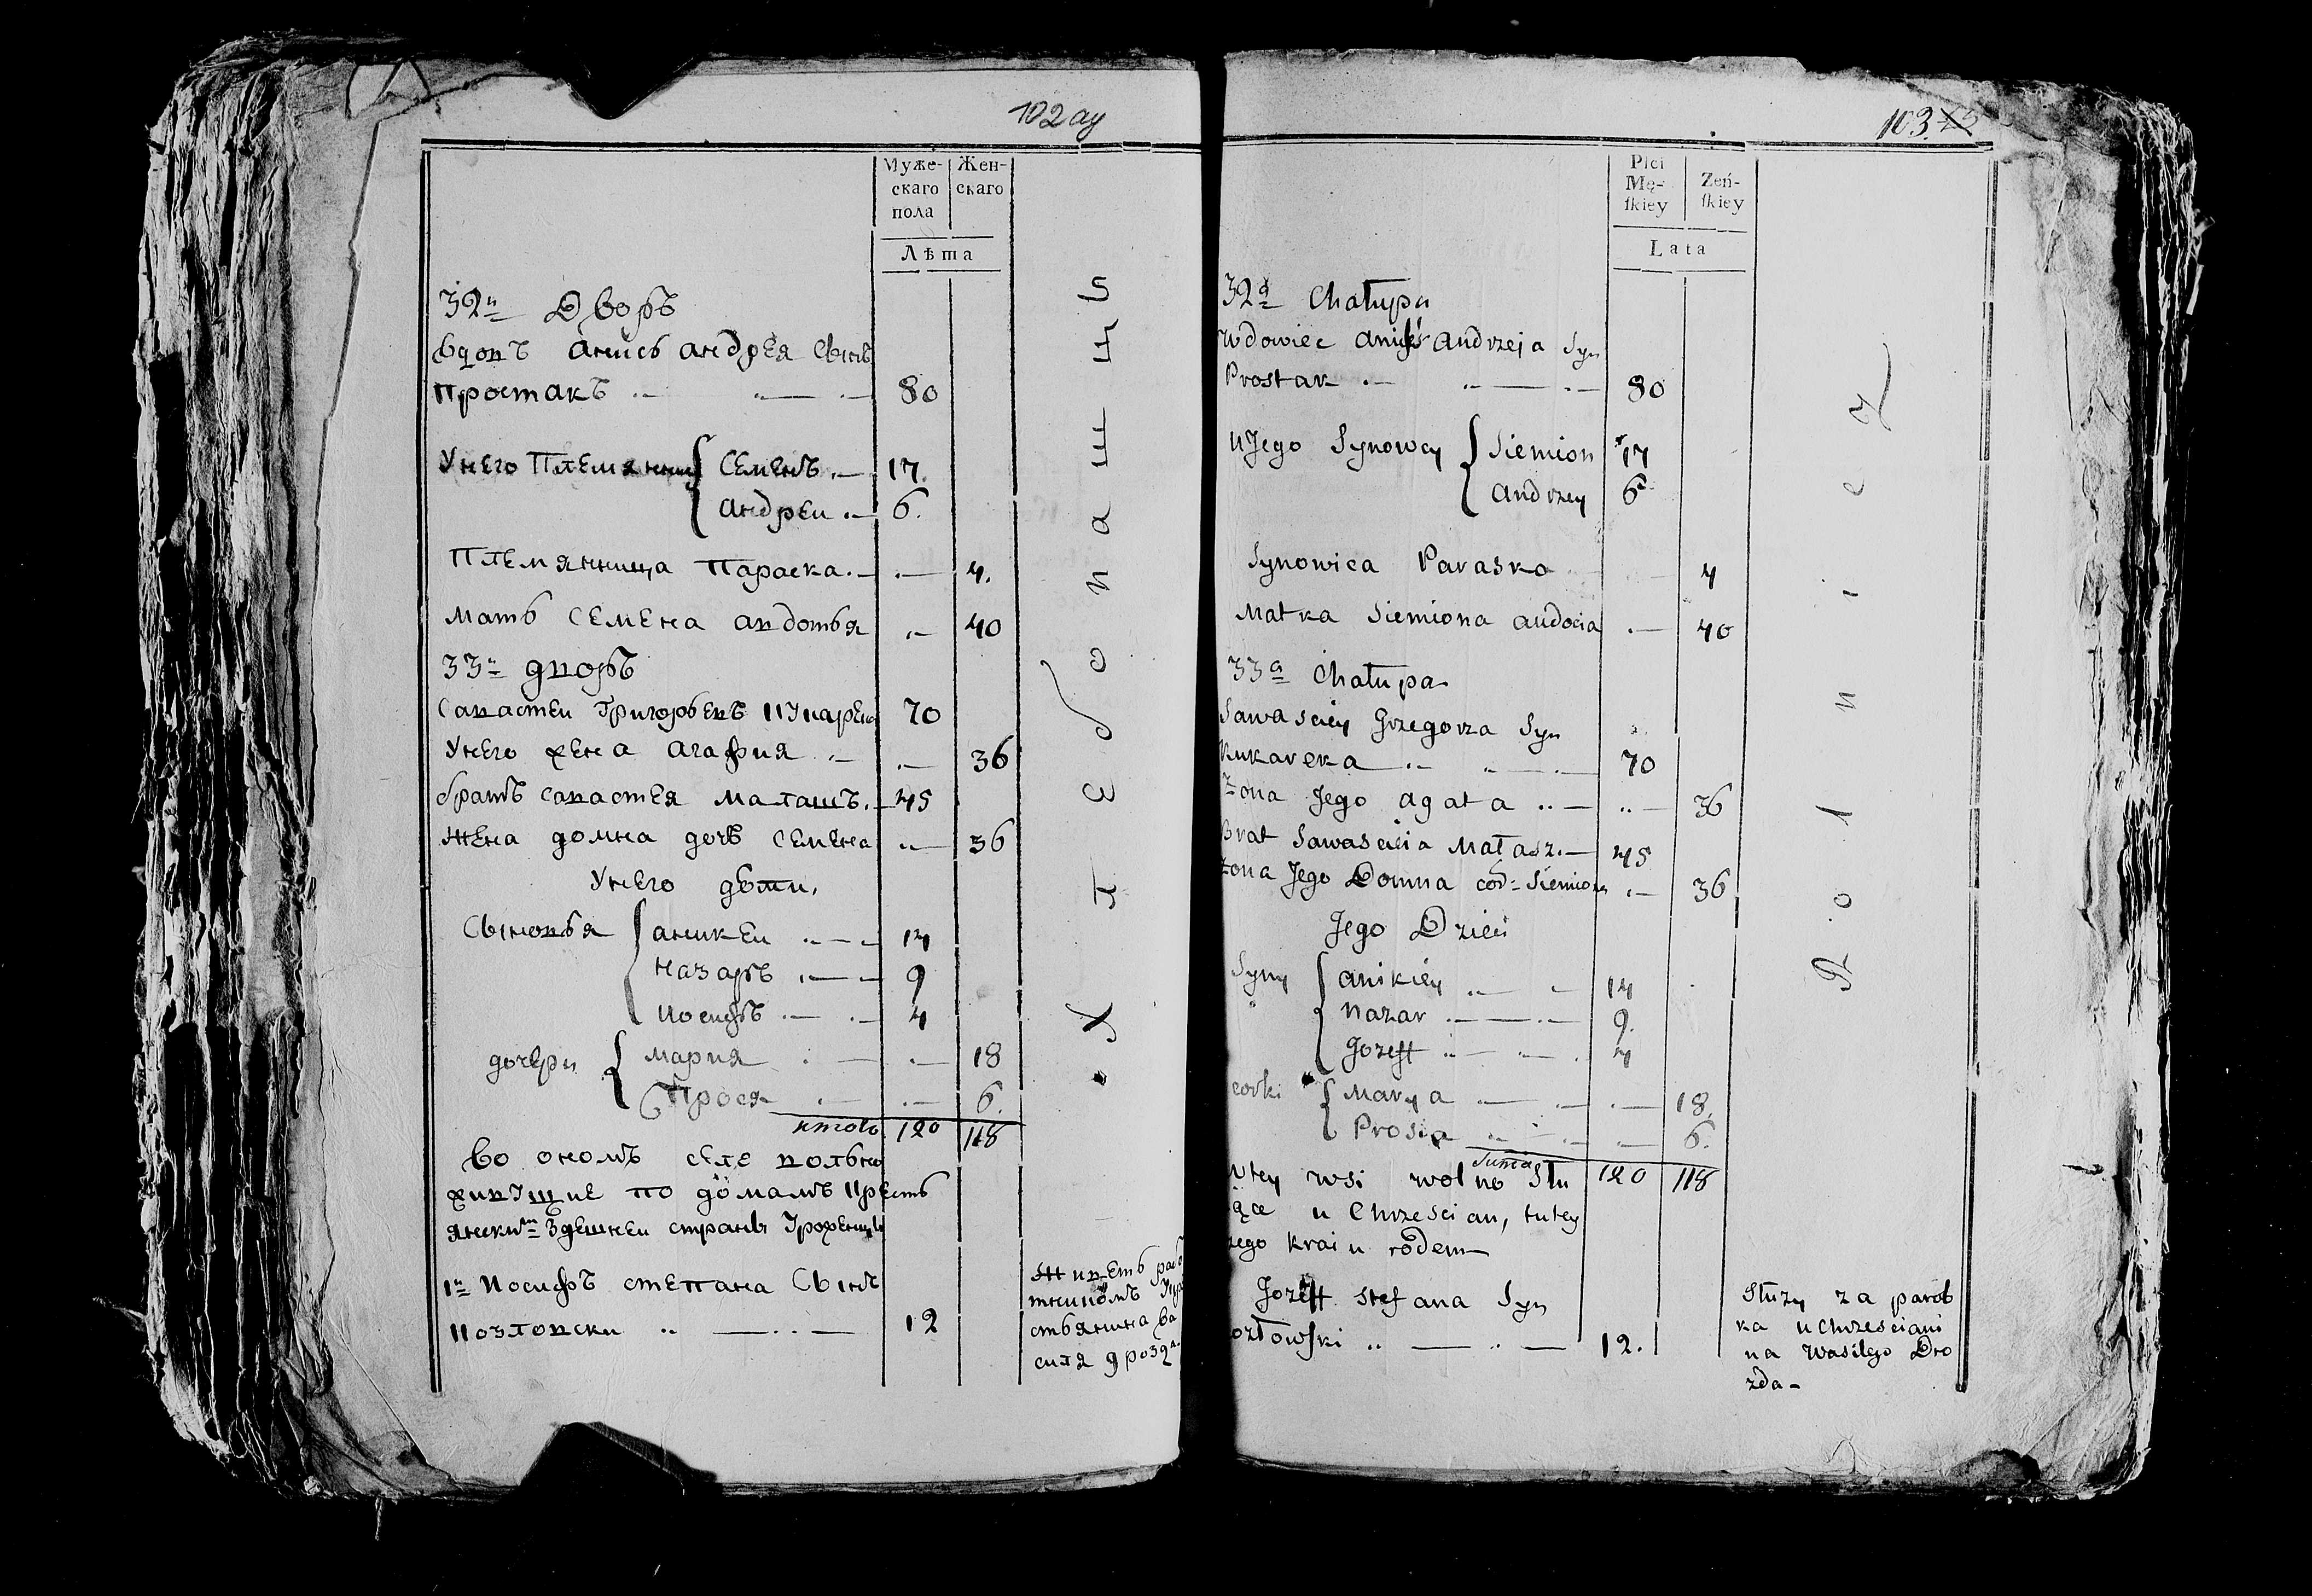 102 ау
Муже-
скаго
пола
Жен-
скаго
Лѣта
32й Дворъ
Вдовъ Анисъ Андрея Сынъ
Простакъ 80
У него Племянники Семенъ 17.
Андреи 6.
Племянница Параска 4.
Мать Семена Авдотья 40
33й дворъ
Савастеи Григорьевъ 70
У него жена Агафия 36
братъ Савастея Малашъ 45
Жена домна дочь Семена 36
У него дѣти,
Сыновья Аникеи 14
Назаръ 9
Иосифъ 4
дочери Мария 18
Прося 6.
итого 120 118
Во ономъ селе вольно
живущие по домамъ кресть
янскимъ здешнеи страны Уроженцы
1й Иосифъ Степана Сынъ
Козловски 12
Живетъ
ствянина Ва
силя дрозда
Хлебопашцъ
103.
Płci
Mę-
ſkiey
Zeń-
ſkiey
Lata
32a Chałupa
Wdowiec Andrzeja Syn
Prostak 80
u Jego Synowcy Siemion 17
Andrzey 6
Synowica Paraska 4
Matka Siemiona Audocia 40
33a Chałupa
Sawasciey Grzegorza Syn
Kukareka 70
Żona Jego Agata 36
Brat Sawascieia Małasz 45
Żona Jego Domna cór= Siemiona 36
Jego Dzieci
Syny Anikiey 14
Nazar 9.
Jozeff 4
corki Marya 18.
Prosia 6.
Suma 120 118
Wtey wsi wolno Słu
żące u Chrzescian, tutey
szego kraiu rodem
Jozeff Stefana Syn
ozłowſki 12.
Służy za parob
ka u Chrzesciani
na Wasilego Dro
zda
Rolnicy